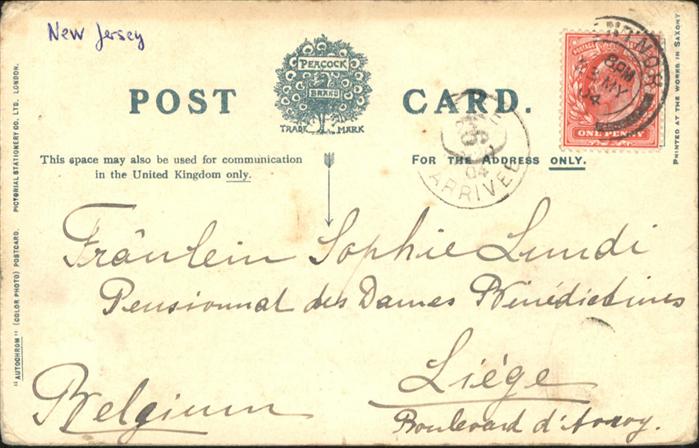 New Jersey
PEACOCK
BRAND
TRADE MARK
POST CARD.
This space may also be used for communication
in the United Kingdom only.
FOR THE ADDRESS ONLY.
ONE PENNY
MY
04
04
ARRIVED
Fräulein Sophie Lundi
Pensionnat des Dames Bénédictines
Liége
Belgium
Boulevard d'Avroy.
"AUTOCHROM" (COLOR PHOTO) POSTCARD. PICTORIAL STATIONERY CO., LTD. LONDON.
PRINTED AT THE WORKS IN SAXONY